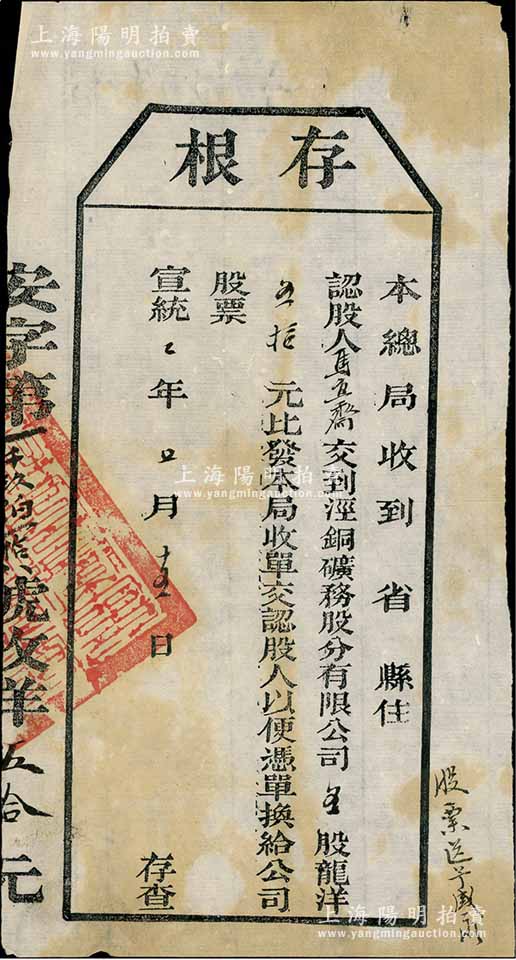 上海陽明拍賣
www.yangmingauction.com
存根
本總局收到 省 縣住
認股人馬直齋交到涇銅礦務股分有限公司 五 股龍洋
五拾 元比發本局收單交認股人以便憑單換給公司
股票
宣統 二 年 四 月 十五 日 存查
安字第一千玖百拾號收洋五拾元
股票送
上海陽明拍賣
www.yangmingauction.com
上海陽明拍賣
www.yangmingauction.com